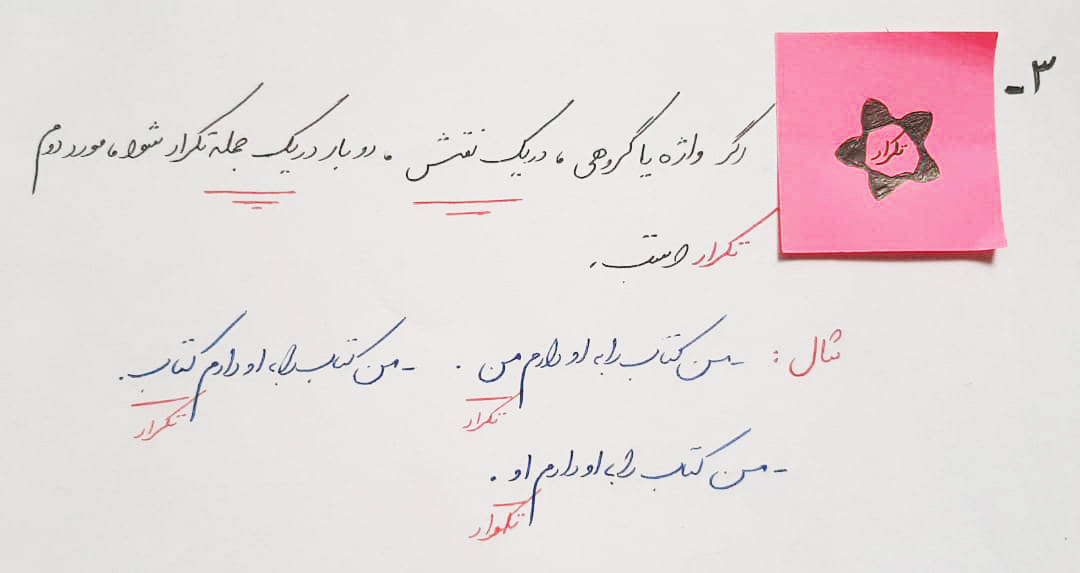 ۳-
تکرار
اگر واژه یا گروهی، در یک نقش، دو بار در یک جمله تکرار شود، مورد دوم
تکرار است.
مثال: - من کتاب را به او دادم من. - من کتاب را به او دادم کتاب.
تکرار تکرار
- من کتاب را به او دادم او.
تکرار